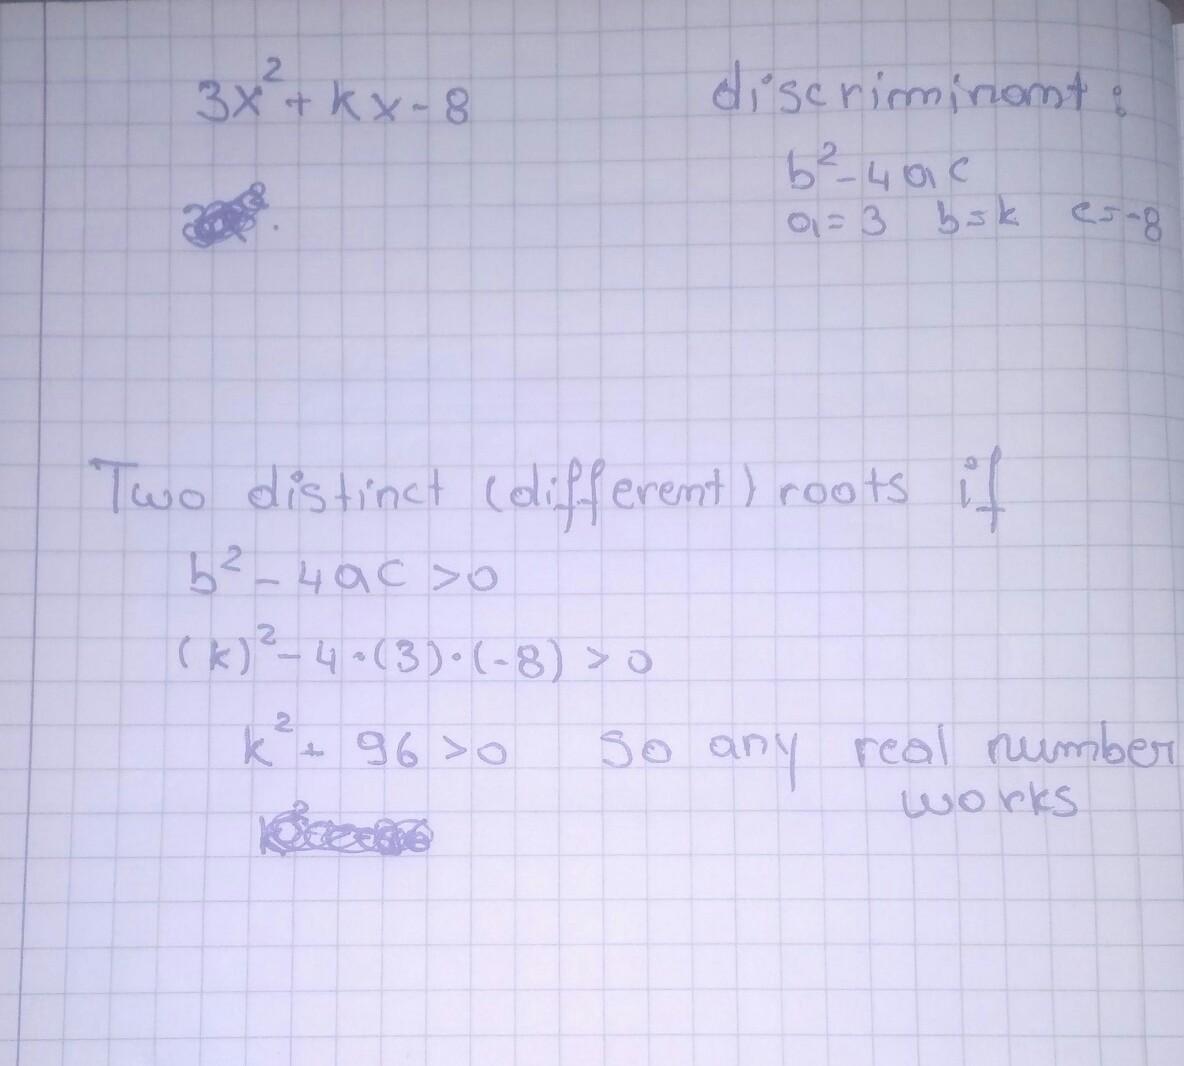 3x² + kx - 8
discriminant:
b² - 4ac
a = 3 b = k c = -8
Two distinct (different) roots if
b² - 4ac > 0
(k)² - 4 · (3) · (-8) > 0
k² + 96 > 0 so any real number
works